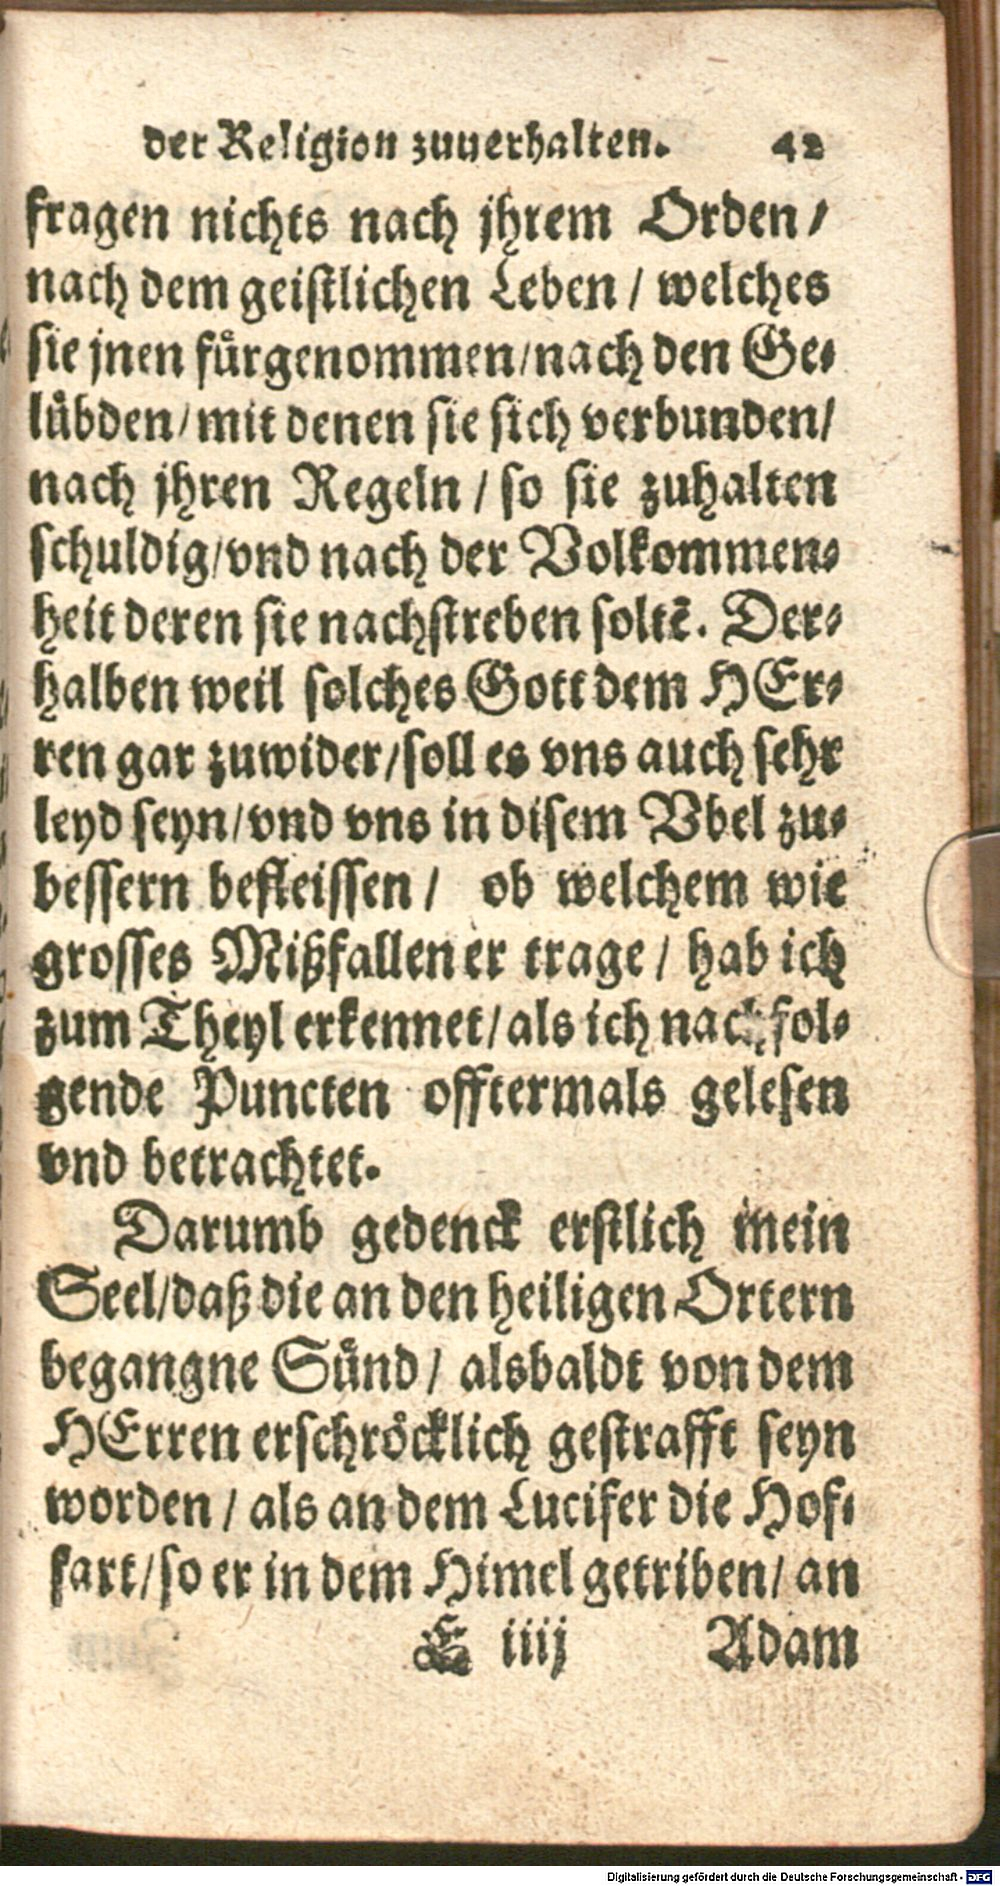 der Religion zuuerhalten. 42
fragen nichts nach jhrem Orden /
nach dem geistlichen Leben / welches
sie jnen fürgenommen / nach den Ge-
lübden / mit denen sie sich verbunden /
nach jhren Regeln / so sie zuhalten
schuldig / vnd nach der Volkommen-
heit deren sie nachstreben soltē. Der-
halben weil solches Gott dem HEr-
ren gar zuwider / soll es vns auch sehr
leyd seyn / vnd vns in disem Vbel zu-
bessern befleissen / ob welchem wie
grosses Mißfallen er trage / hab ich
zum Theyl erkennet / als ich nachfol-
gende Puncten offtermals gelesen
vnd betrachtet.
Darumb gedenck erstlich mein
Seel / daß die an den heiligen Ortern
begangne Sünd / alsbaldt von dem
HErren erschröcklich gestrafft seyn
worden / als an dem Lucifer die Hof-
fart / so er in dem Himel getriben / an
E iiij Adam
Digitalisierung gefördert durch die Deutsche Forschungsgemeinschaft - DFG